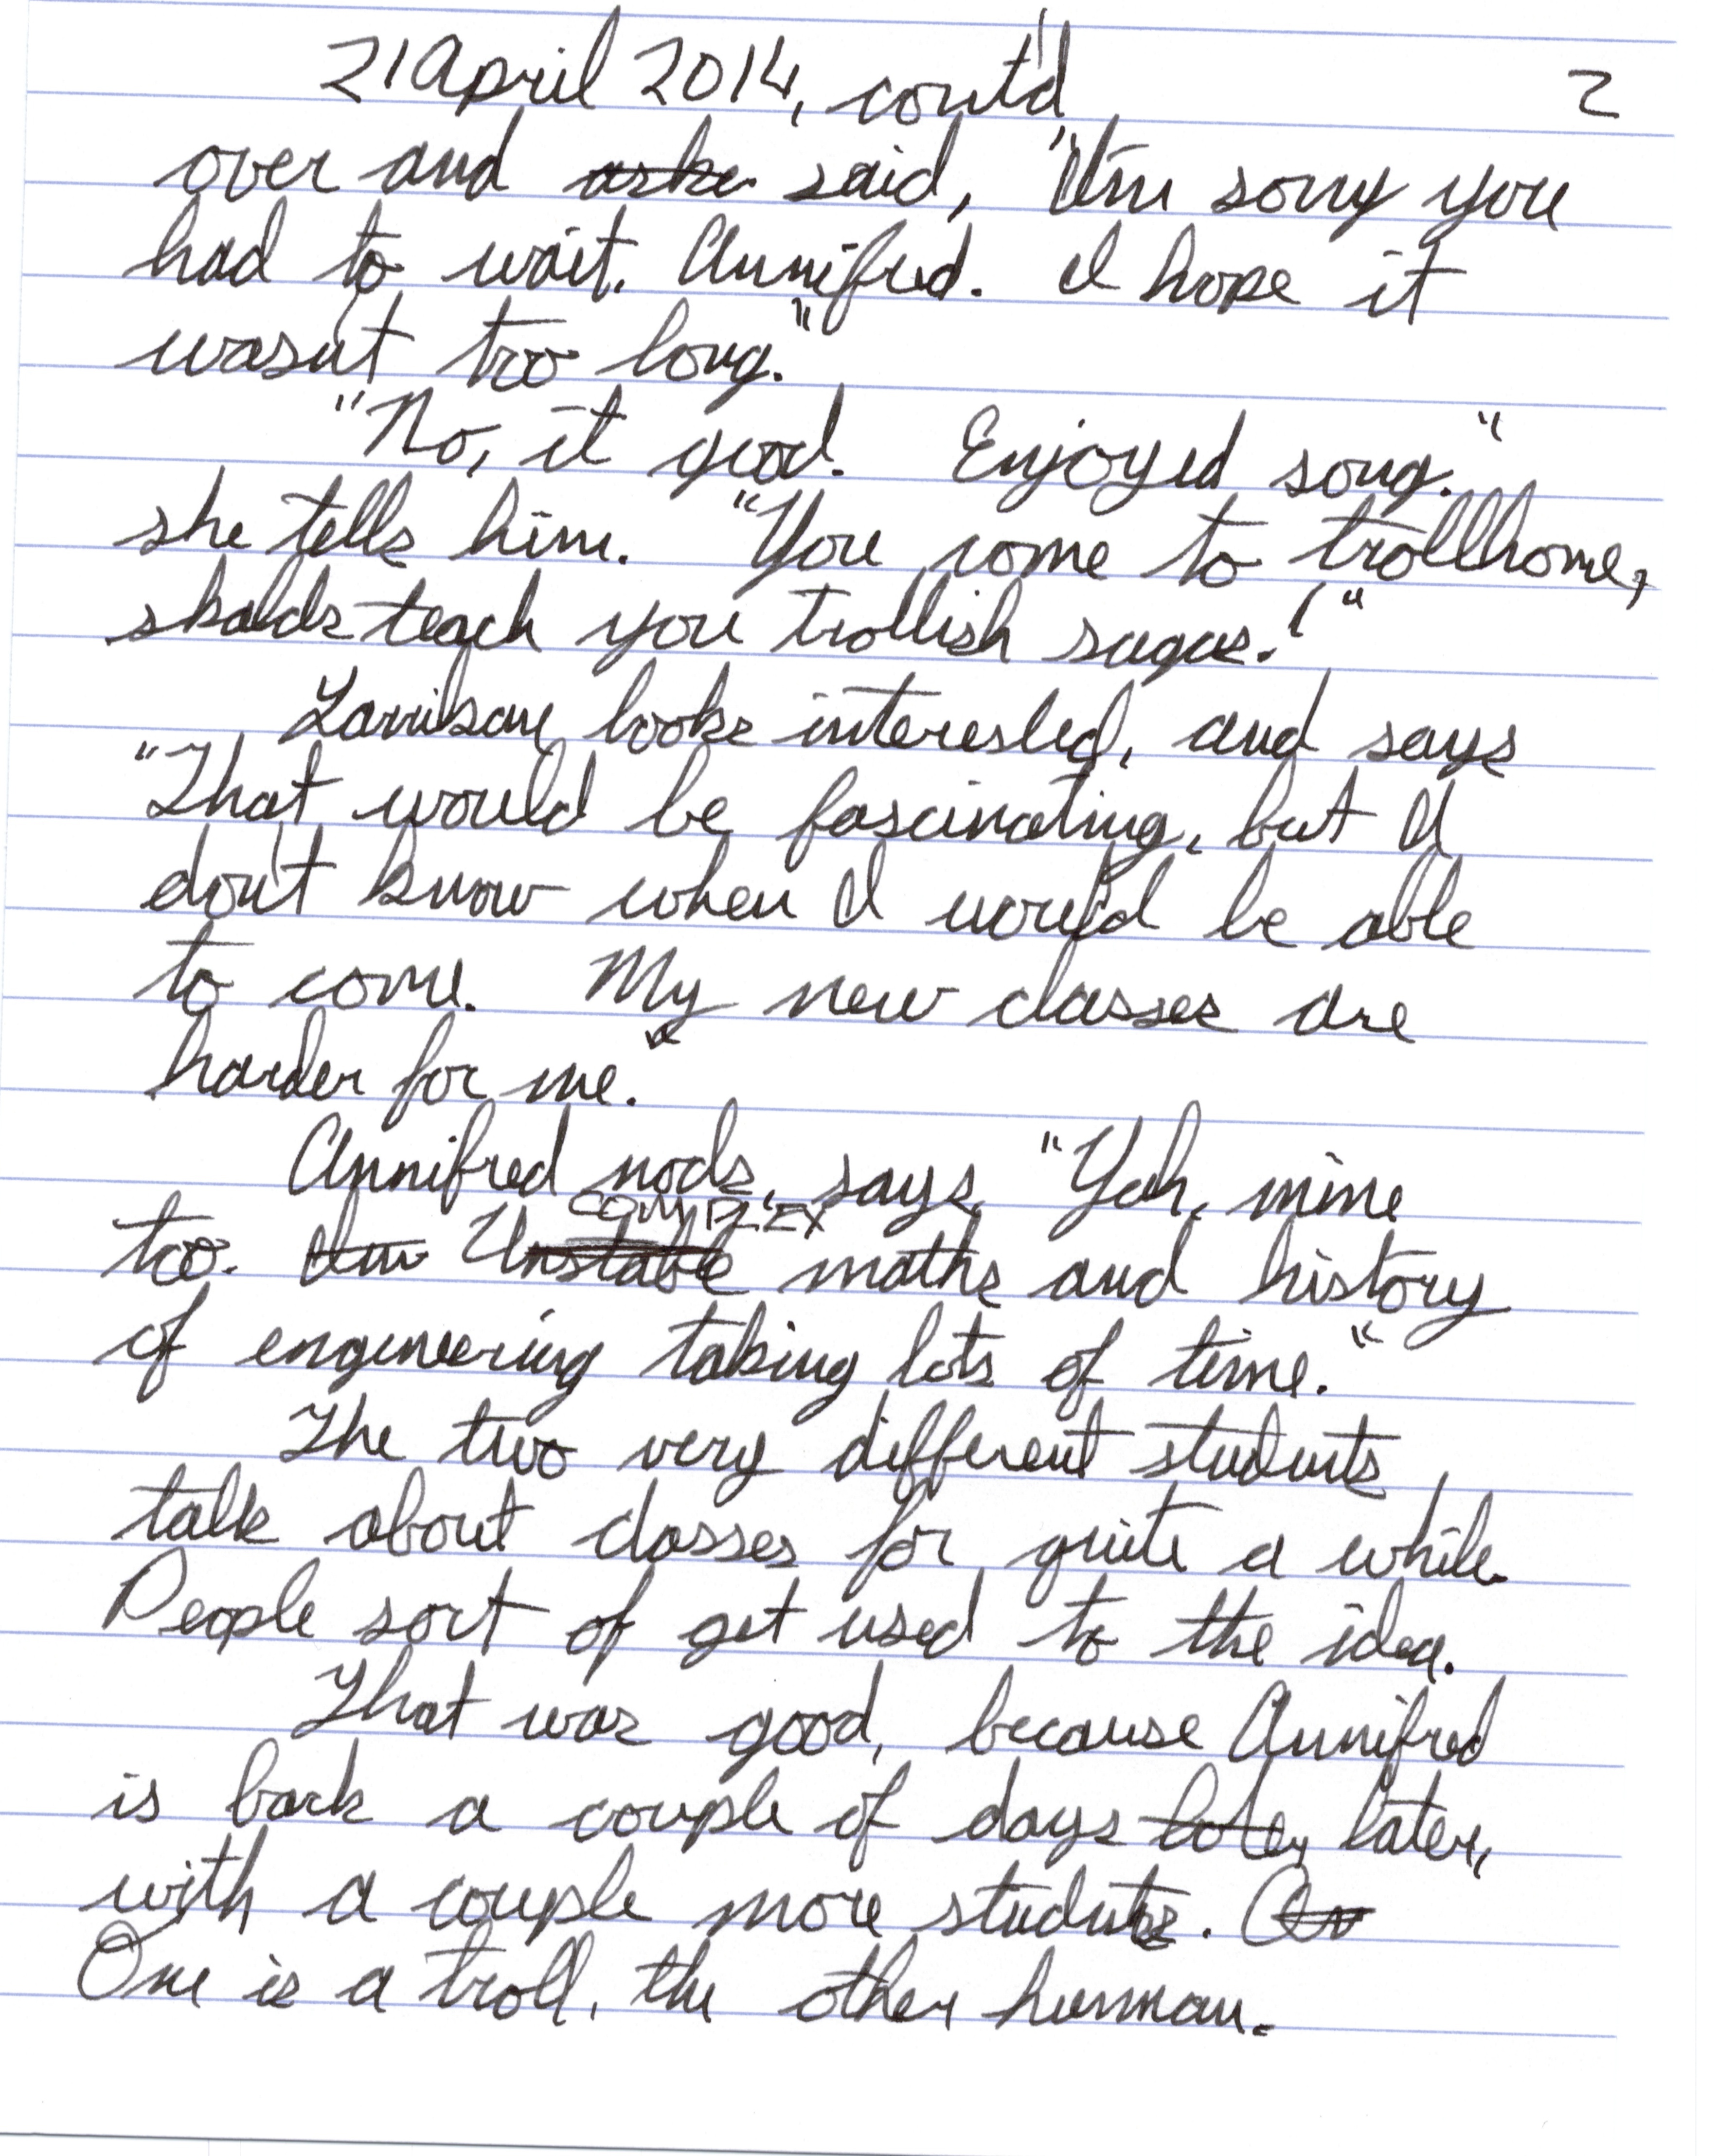 21 April 2014, cont'd 2
over and aske said, "I'm sorry you
had to wait, Annifred. I hope it
wasn't too long."
"No, it good. Enjoyed song."
she tells him. "You come to trollhome,
skalds teach you trollish sagas!"
looks interested, and says
"That would be fascinating, but I
don't know when I would be able
to come. My new classes are
harder for me."
Annifred nods, says, "Yah, mine
COMPLEX
too. Um Unstable maths and history
of engineering taking lots of time."
The two very different students
talk about classes for quite a while.
People sort of get used to the idea.
That was good, because Annifred
is back a couple of days later, later,
with a couple more students. On
One is a troll, the other human.